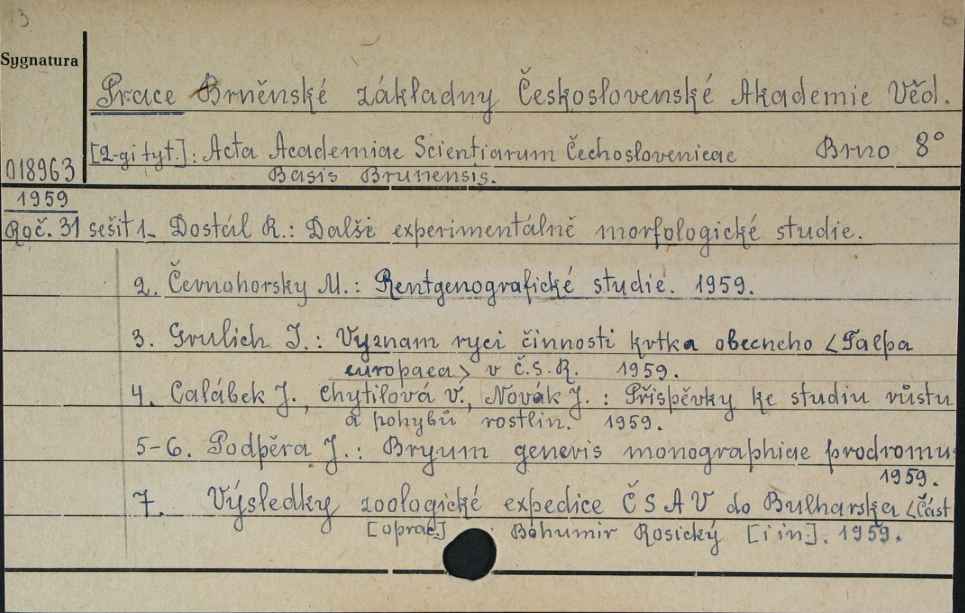 13
Sygnatura
Prace Brněnské základny Československé Akademie Věd.
[2-gi tyt.]: Acta Academiae Scientiarum Čechoslovenicae Brno 8°
018963 Basis Brunensis.
1959
Roč. 31 sešit 1. Dostál R.: Dalši experimentálně morfologické studie.
2. Černohorsky M.: Rentgenografické studie. 1959.
3. Grulich J.: Vyznam ryci činnosti krtka obecneho <Talpa
europaea> v Č.S.R. 1959.
4. Calábek J., Chytilová V., Novák J.: Přispěvky ke studiu vůstu
a pohybů rostlin. 1959.
5-6. Podpěra J.: Bryum generis monographiae prodromus
1959.
7. Výsledky zoologické expedice ČSAV do Bulharska <Část
[oprac.] Bohumir Rosický [i in.]. 1959.